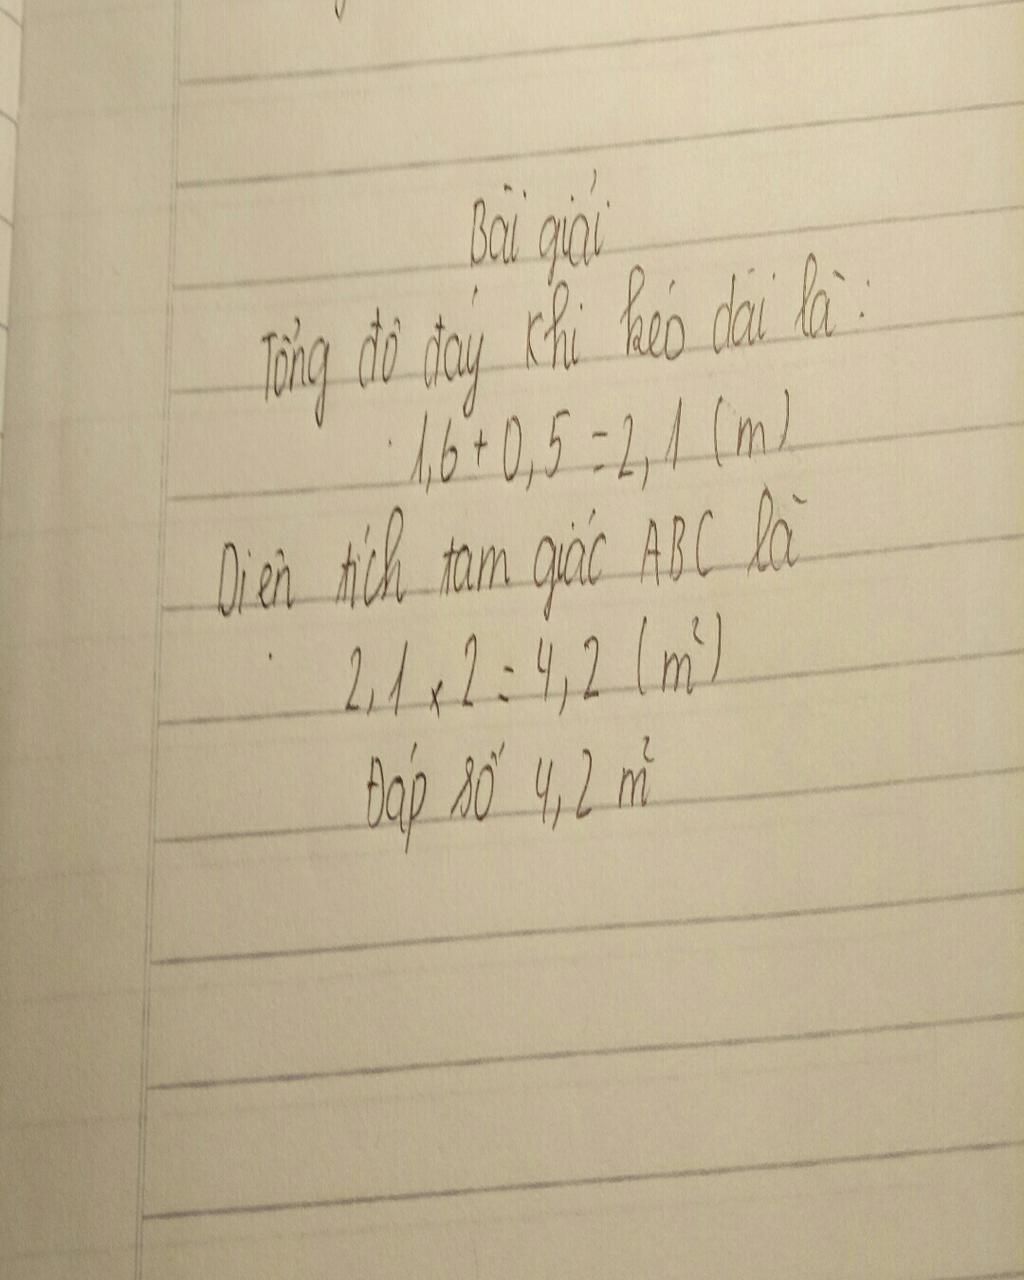 Bài giải
Tổng độ đáy khi kéo dài là:
1,6 + 0,5 = 2,1 (m)
Diện tích tam giác ABC là
2,1 x 2 = 4,2 (m²)
Đáp số 4,2 m²